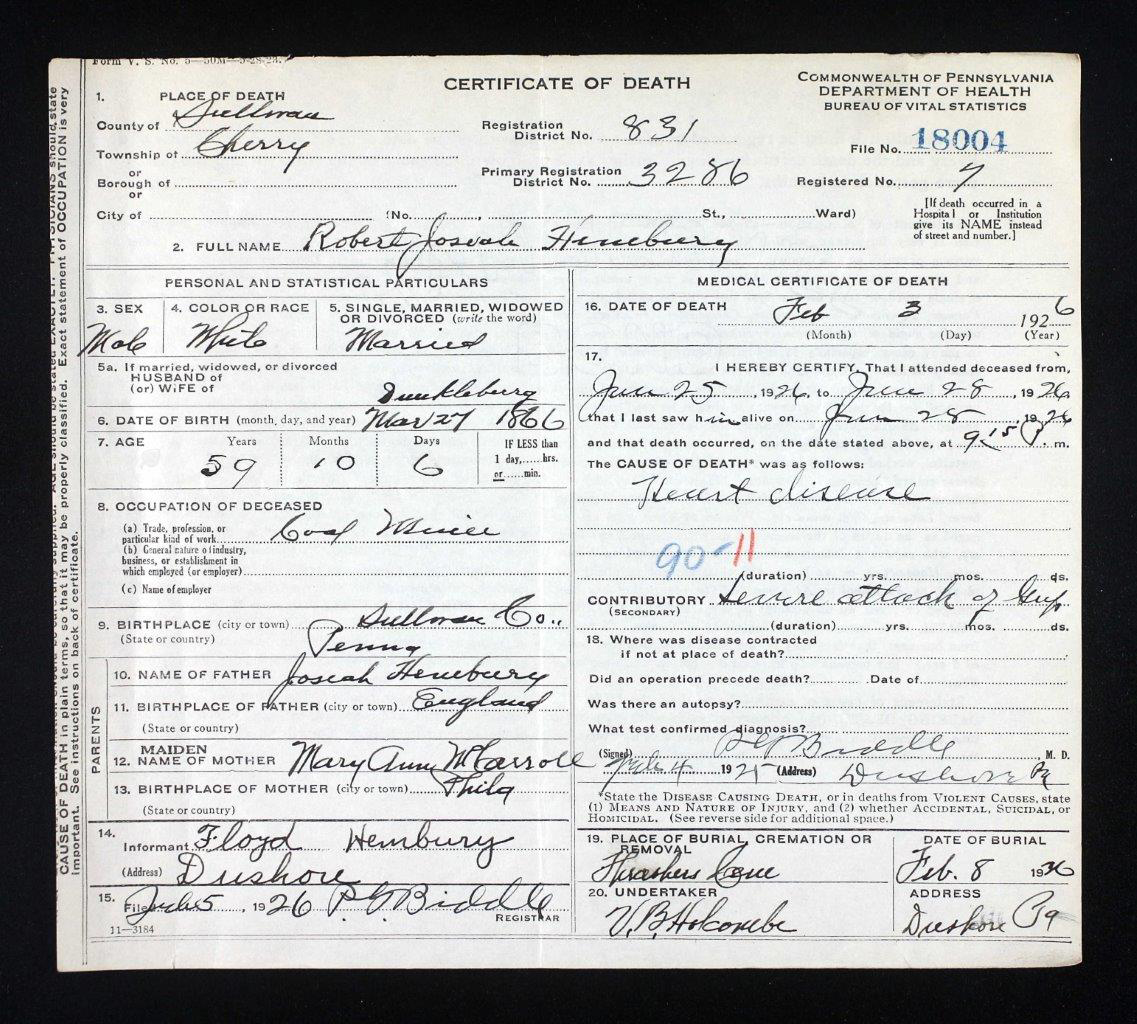 Form V. S. No. 5—50M—5-28-23.
CERTIFICATE OF DEATH
COMMONWEALTH OF PENNSYLVANIA
DEPARTMENT OF HEALTH
BUREAU OF VITAL STATISTICS
1. PLACE OF DEATH
County of Sullivan
Township of Cherry
or
Borough of
or
City of (No. , St., Ward)
Registration District No. 831
Primary Registration District No. 3286
File No. 18004
Registered No. 7
[If death occurred in a
Hospital or Institution
give its NAME instead
of street and number.]
2. FULL NAME Robert Josiah Henebury
PERSONAL AND STATISTICAL PARTICULARS
3. SEX
Male
4. COLOR OR RACE
White
5. SINGLE, MARRIED, WIDOWED
OR DIVORCED (write the word)
Married
5a. If married, widowed, or divorced
HUSBAND of
(or) WIFE of Dunkleberg
6. DATE OF BIRTH (month, day, and year) Mar 27 1866
7. AGE Years Months Days
59 10 6
IF LESS than
1 day,......hrs.
or ......min.
8. OCCUPATION OF DECEASED
(a) Trade, profession, or
particular kind of work Coal Miner
(b) General nature of industry,
business, or establishment in
which employed (or employer)
(c) Name of employer
9. BIRTHPLACE (city or town) Sullivan Co..
(State or country) Penna
PARENTS
10. NAME OF FATHER Josiah Henebury
11. BIRTHPLACE OF FATHER (city or town) England
(State or country)
12. MAIDEN NAME OF MOTHER Mary Ann McCarroll
13. BIRTHPLACE OF MOTHER (city or town) Phila
(State or country)
14.
Informant Floyd Hembury
(Address) Dushore
15.
Filed Feb 5, 1926 P G Biddle
REGISTRAR
11—3184
MEDICAL CERTIFICATE OF DEATH
16. DATE OF DEATH Feb 3 1926
(Month) (Day) (Year)
17.
I HEREBY CERTIFY, That I attended deceased from,
Jan 25, 1926, to Jan 28, 1926
that I last saw him alive on Jan 28, 1926
and that death occurred, on the date stated above, at 9 15 P. m.
The CAUSE OF DEATH* was as follows:
Heart disease
90-11
(duration) yrs. mos. ds.
CONTRIBUTORY Severe attack of Grip
(SECONDARY)
(duration) yrs. mos. ds.
18. Where was disease contracted
if not at place of death?
Did an operation precede death? Date of
Was there an autopsy?
What test confirmed diagnosis?
(Signed) P G Biddle, M. D.
Feb 4 1925 (Address) Dushore Pa
*State the DISEASE CAUSING DEATH, or in deaths from VIOLENT CAUSES, state
(1) MEANS AND NATURE OF INJURY, and (2) whether ACCIDENTAL, SUICIDAL, or
HOMICIDAL. (See reverse side for additional space.)
19. PLACE OF BURIAL, CREMATION OR
REMOVAL
Thrashers Cem
DATE OF BURIAL
Feb. 8 1926
20. UNDERTAKER
V. B. Holcombe
ADDRESS
Dushore Pa
state EXACTLY. PHYSICIANS should state
CAUSE OF DEATH in plain terms, so that it may be properly classified. Exact statement of OCCUPATION is very
important. See instructions on back of certificate.